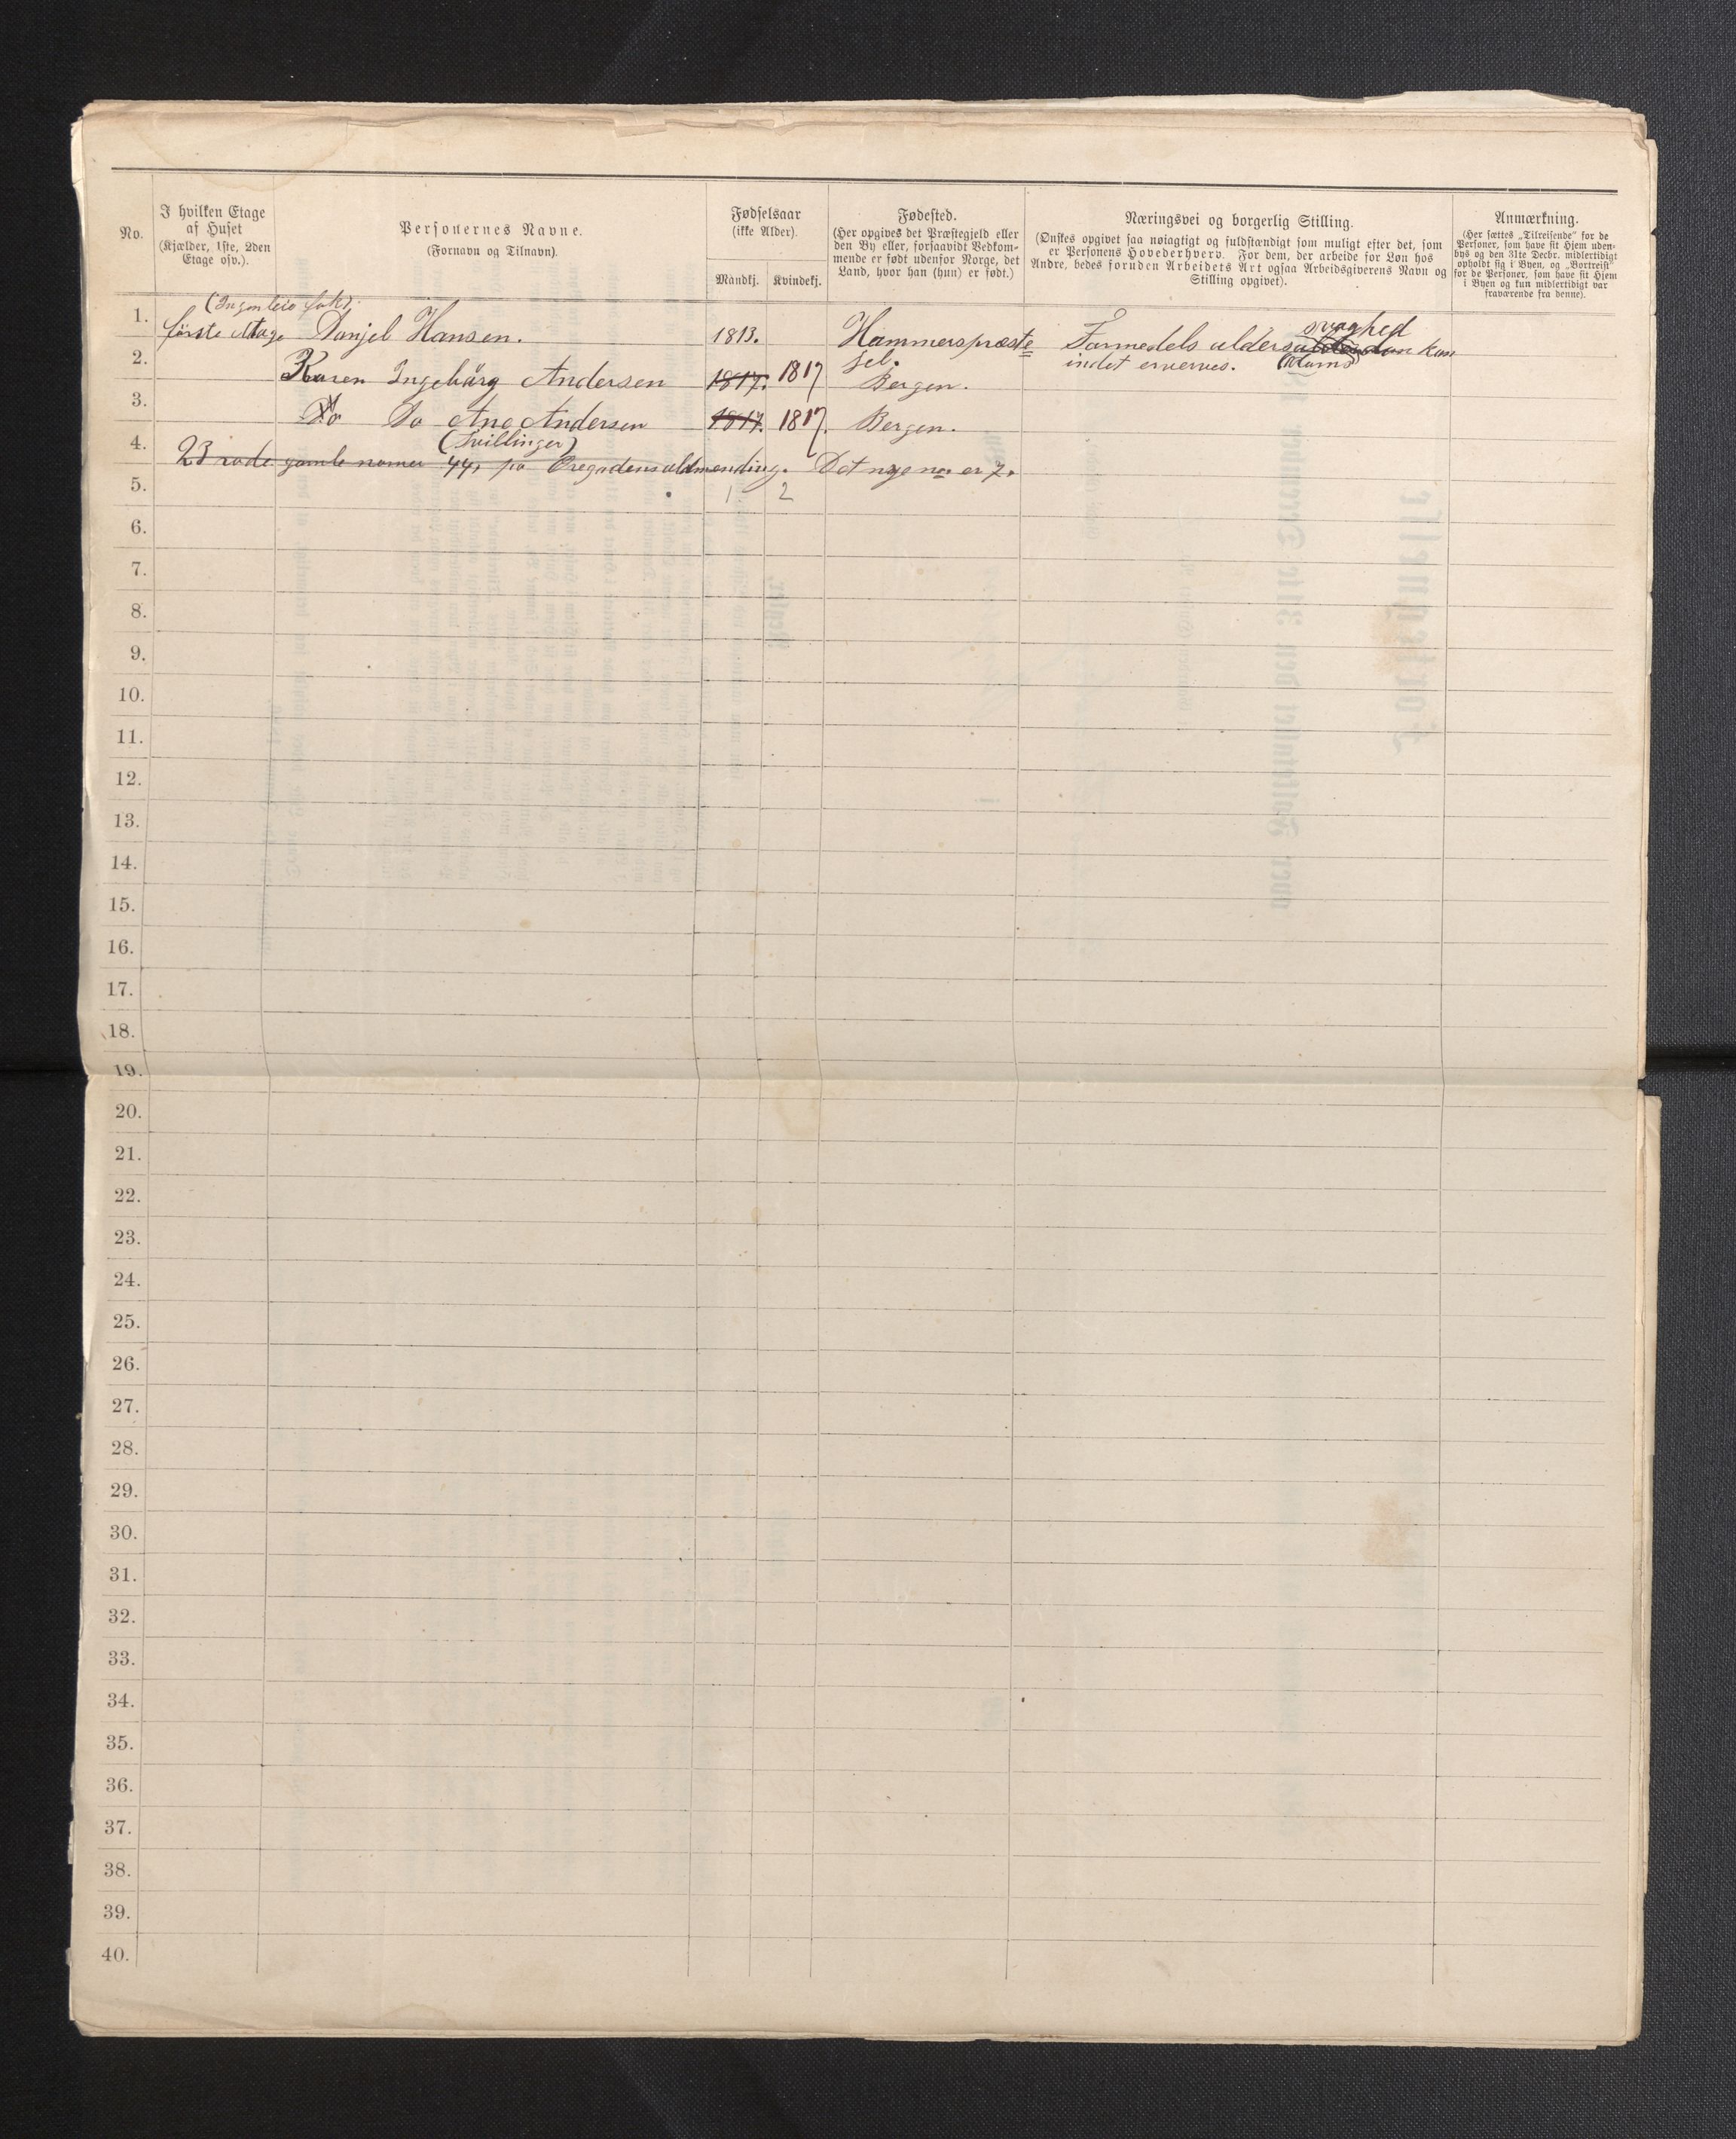 No.
I hvilken Etage
af Huset
(Kjælder, 1ste, 2den
Etage osv.).
Personernes Navne.
(Fornavn og Tilnavn).
Fødselsaar
(ikke Alder).
Mandkj. Kvindekj.
Fødested.
(Her opgives det Præstegjeld eller
den By eller, forsaavidt Vedkom-
mende er født udenfor Norge, det
Land, hvor han (hun) er født.)
Næringsvei og borgerlig Stilling.
(Ønskes opgivet saa nøiagtigt og fuldstændigt som muligt efter det, som
er Personens Hovederhverv. For dem, der arbeide for Løn hos
Andre, bedes foruden Arbeidets Art ogsaa Arbeidsgiverens Navn og
Stilling opgivet).
Anmærkning.
(Her sættes „Tilreisende" for de
Personer, som have sit Hjem uden-
bys og den 31te Decbr. midlertidigt
opholdt sig i Byen, og „Bortreist"
for de Personer, som have sit Hjem
i Byen og kun midlertidigt var
fraværende fra denne).
1. første etage Danjel Hansen. 1813. Hammerspræste= alders svaghed kan
gel. indet erverves.
2. Karen Ingebårg Andersen 1817. 1817 Bergen.
3. Do Do Ane Andersen 1817. 1817. Bergen.
(Tvillinger)
4. 23 rode gamle nomer 44, på Øregadensaldmending. Det nye no er 7.
5. 1 2
6.
7.
8.
9.
10.
11.
12.
13.
14.
15.
16.
17.
18.
19.
20.
21.
22.
23.
24.
25.
26.
27.
28.
29.
30.
31.
32.
33.
34.
35.
36.
37.
38.
39.
40.